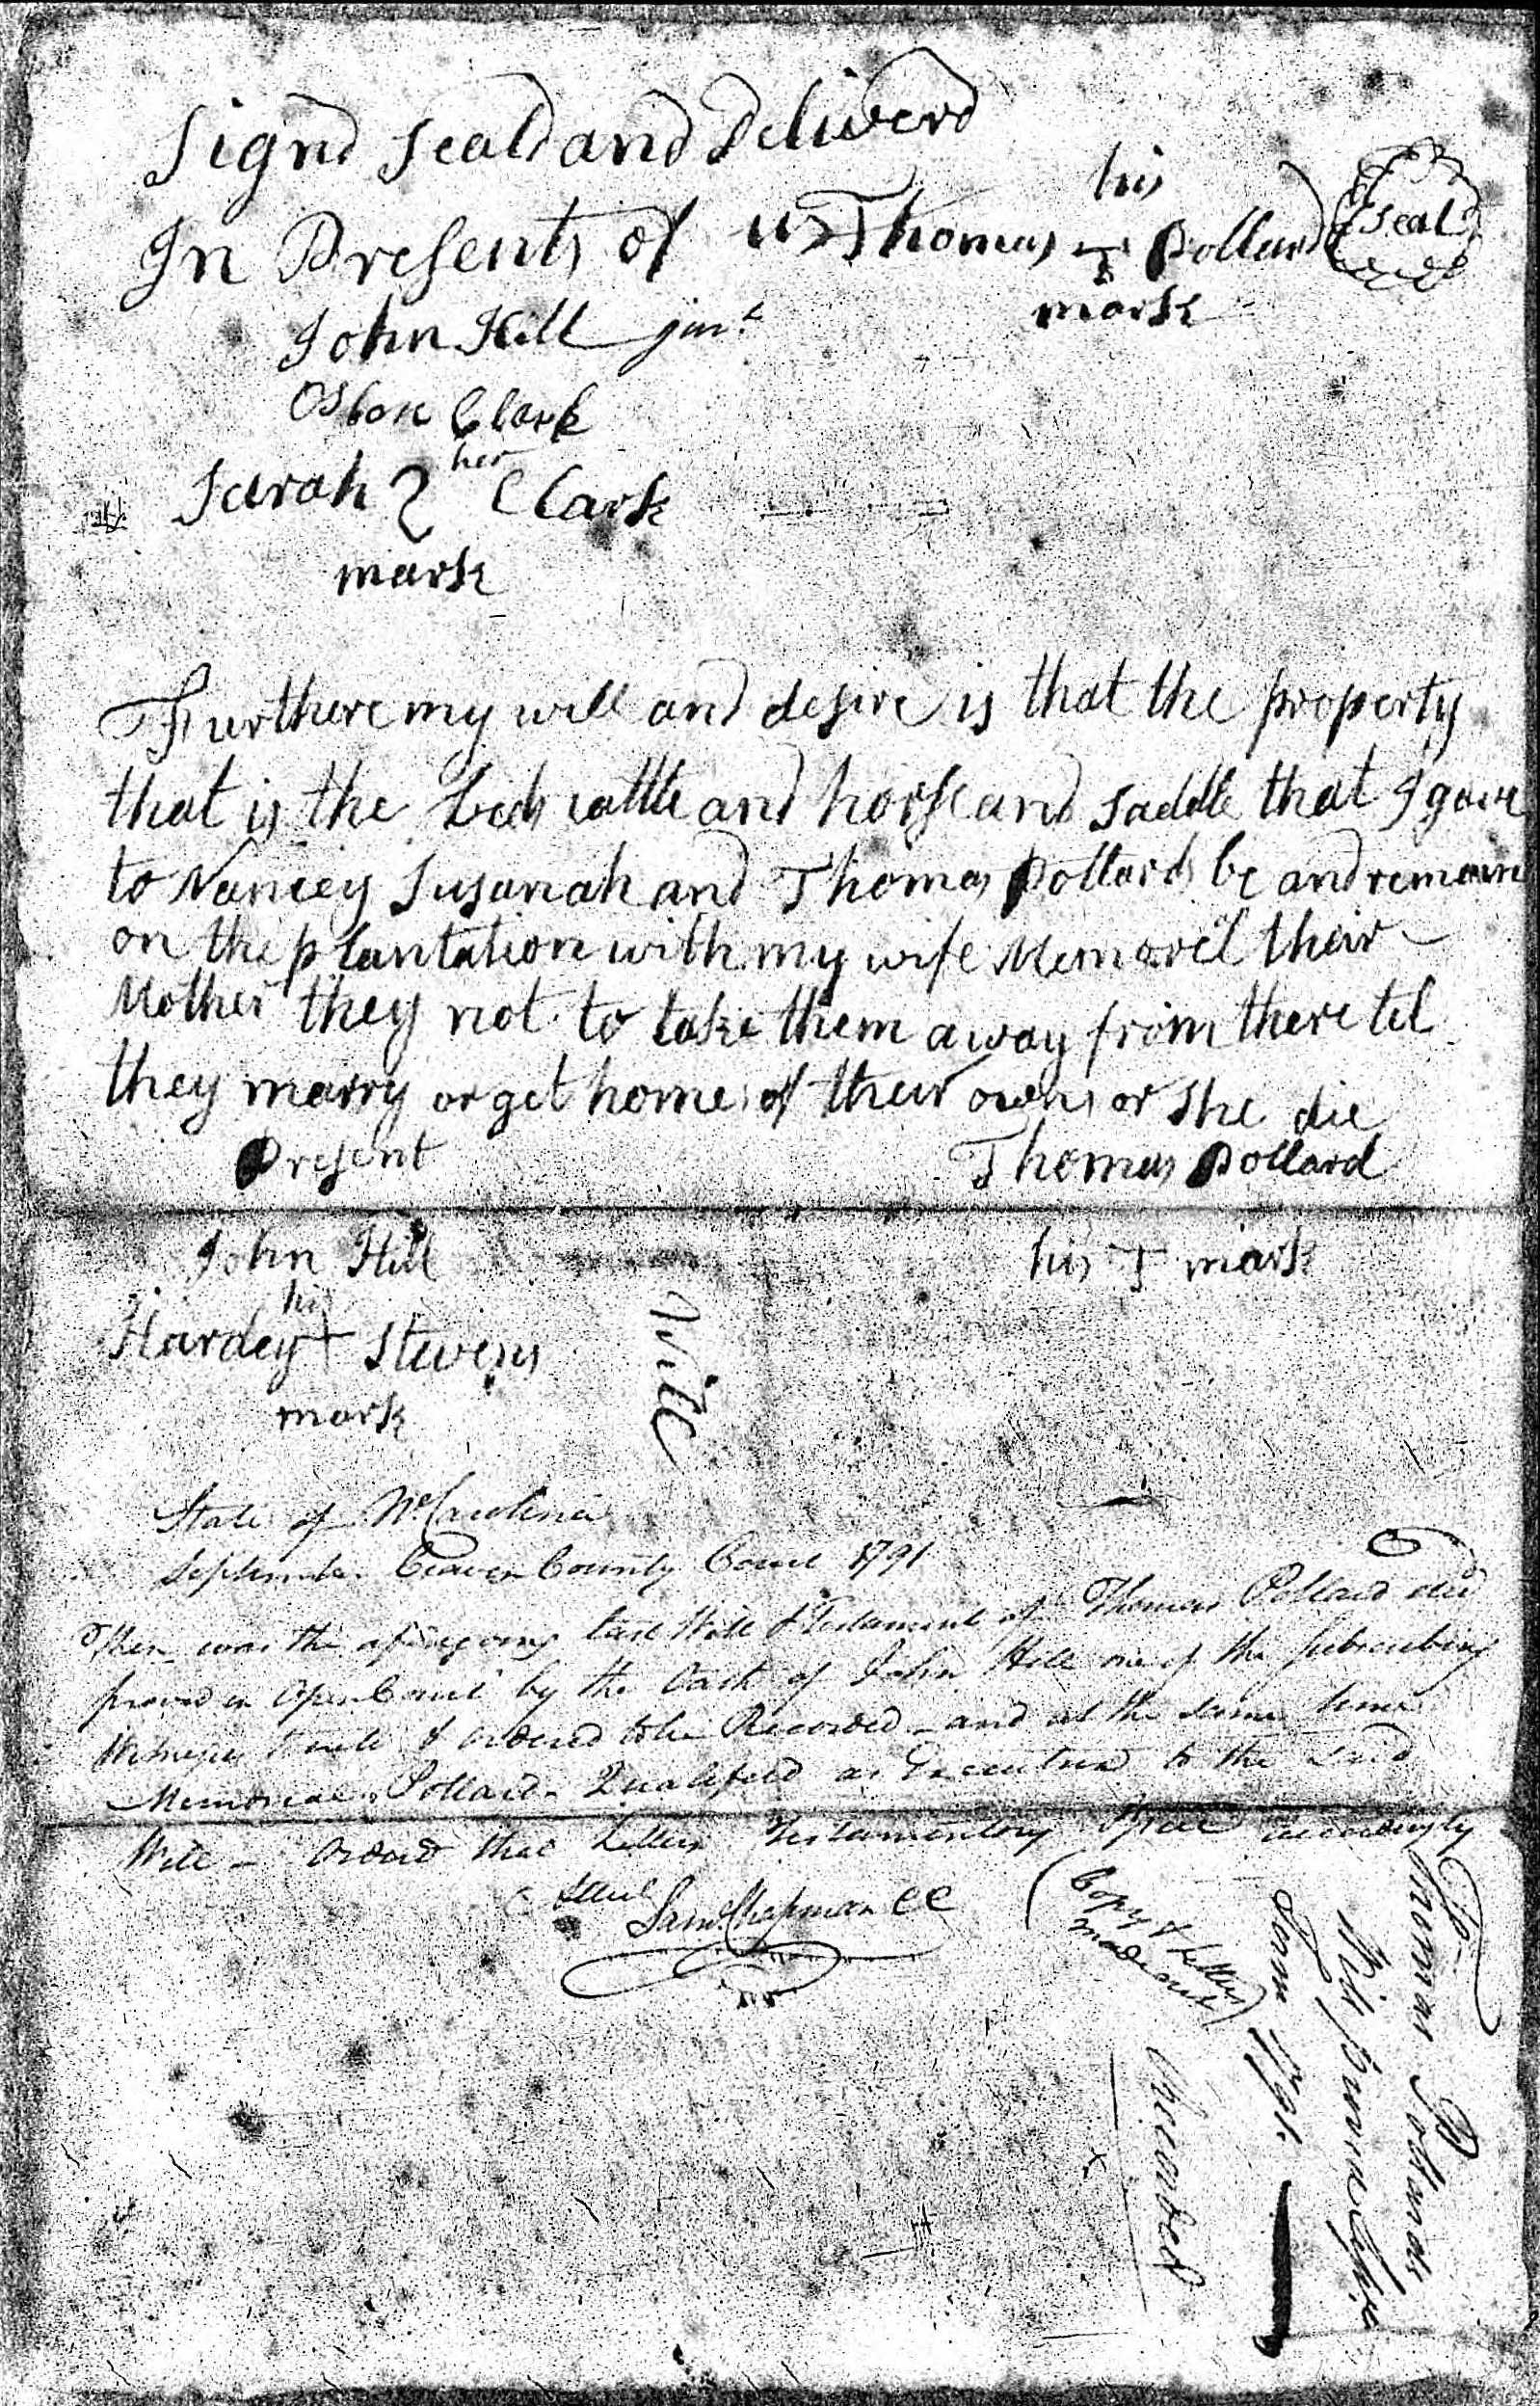 Signd Seald and Deliverd
In Presents of us Thomas T Pollard Seal
his
mark
John Hill junr
Osbon Clark
her
Sarah Clark
mark
Furthere my will and desire is that the property
that is the beds cattle and horse and saddle that I gave
to Nancey Susanah and Thomas Pollards be and remain
on the plantation with my wife Memorel their
Mother they not to take them away from there tel
they marry or get homes of their owns or she die
Present Thomas Pollard
John Hill his T mark
his
Hardey + Stevens
mark
Will
State of No Carolina
September Craven County Court 1791
Then was the aforegoing last Will & Testament of Thomas Pollard decd
proved in Open Court by the Oath of John Hill one of the subscribing
Witnesses thereto & ordered to be Recorded - and at the same time
Memorial Pollard Qualified as Executrix to the said
Will - Orderd that Letters Testamentary Issue accordingly
Saml Chapman CC
(Copy & Letters
made out)
Thomas Pollards
Will
Term 1791.
Recorded